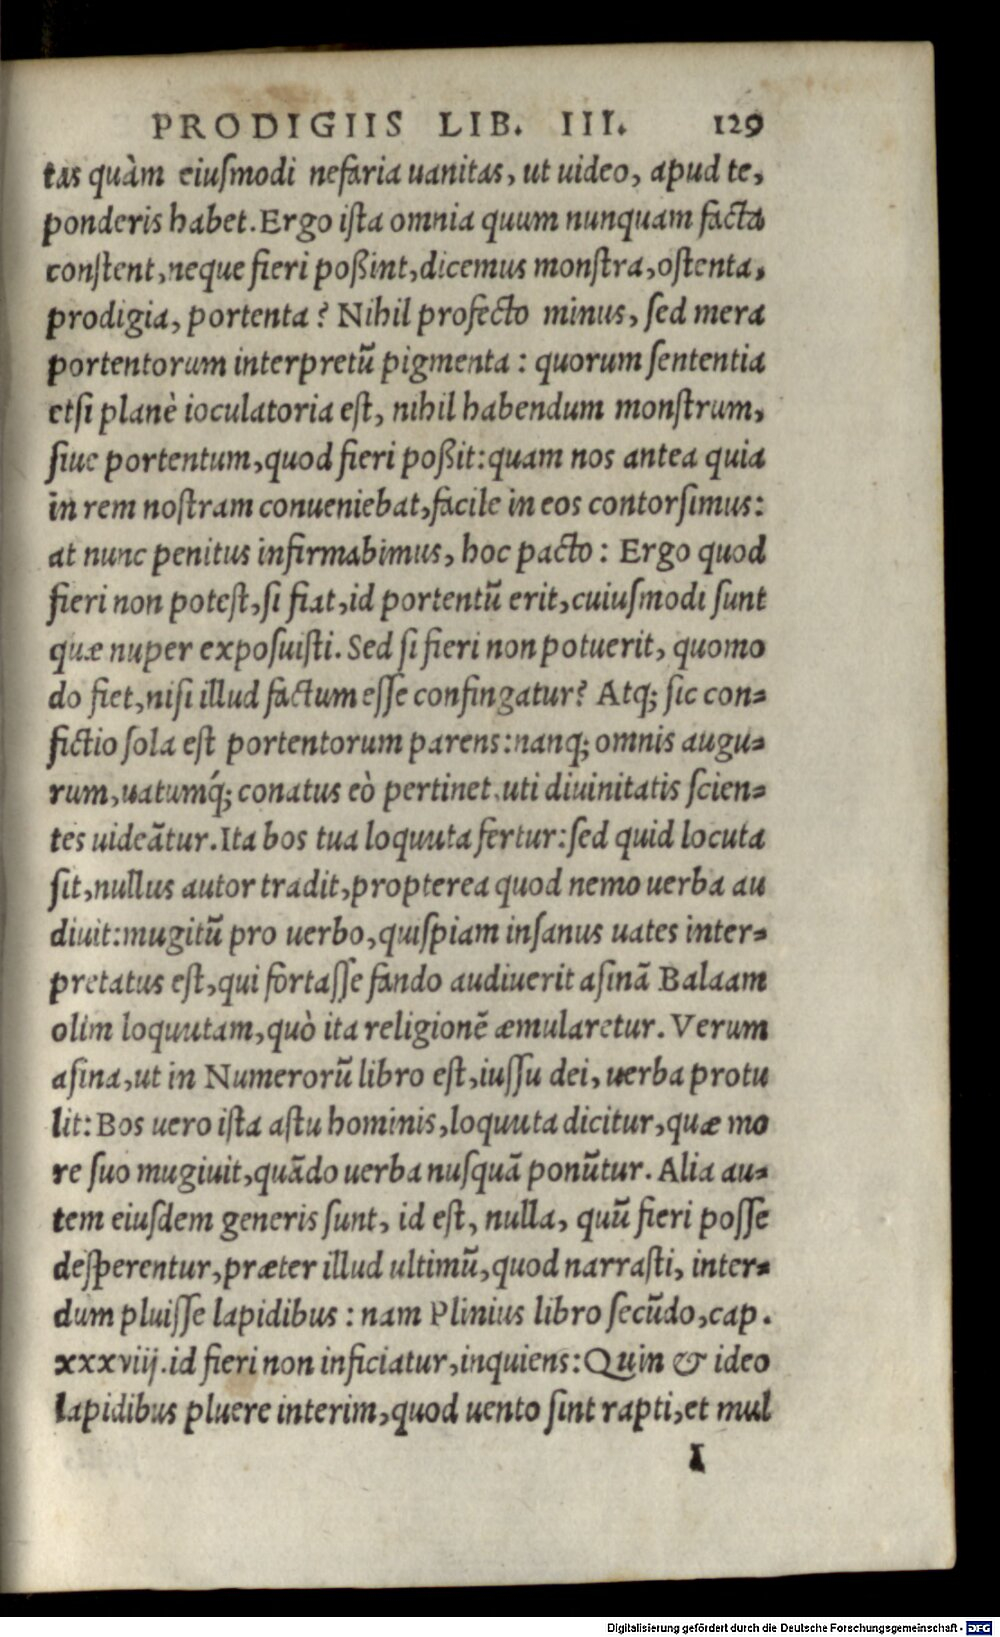 PRODIGIIS LIB. III. 129
tas quàm eiuſmodi nefaria uanitas, ut uideo, apud te,
ponderis habet. Ergo iſta omnia quum nunquam facta
conſtent, neque fieri poßint, dicemus monſtra, oſtenta,
prodigia, portenta? Nihil profecto minus, ſed mera
portentorum interpretū pigmenta: quorum ſententia
etſi planè ioculatoria eſt, nihil habendum monſtrum,
ſiue portentum, quod fieri poßit: quam nos antea quia
in rem noſtram conueniebat, facile in eos contorſimus:
at nunc penitus infirmabimus, hoc pacto: Ergo quod
fieri non poteſt, ſi fiat, id portentū erit, cuiuſmodi ſunt
quæ nuper expoſuiſti. Sed ſi fieri non potuerit, quomo
do fiet, niſi illud factum eſſe confingatur? Atq; ſic con-
fictio ſola eſt portentorum parens: nanq; omnis augu-
rum, uatumq́; conatus eò pertinet, uti diuinitatis ſcien-
tes uideātur. Ita bos tua loquuta fertur: ſed quid locuta
ſit, nullus autor tradit, propterea quod nemo uerba au
diuit: mugitū pro uerbo, quiſpiam inſanus uates inter-
pretatus eſt, qui fortaſſe fando audiuerit aſinā Balaam
olim loquutam, quò ita religionē æmularetur. Verum
aſina, ut in Numerorū libro eſt, iuſſu dei, uerba protu
lit: Bos uero iſta aſtu hominis, loquuta dicitur, quæ mo
re ſuo mugiuit, quādo uerba nuſquā ponūtur. Alia au-
tem eiuſdem generis ſunt, id eſt, nulla, quū fieri poſſe
deſperentur, præter illud ultimū, quod narraſti, inter-
dum pluiſſe lapidibus: nam Plinius libro ſecūdo, cap.
xxxviij. id fieri non inficiatur, inquiens: Quin & ideo
lapidibus pluere interim, quod uento ſint rapti, et mul
I
Digitalisierung gefördert durch die Deutsche Forschungsgemeinschaft - DFG